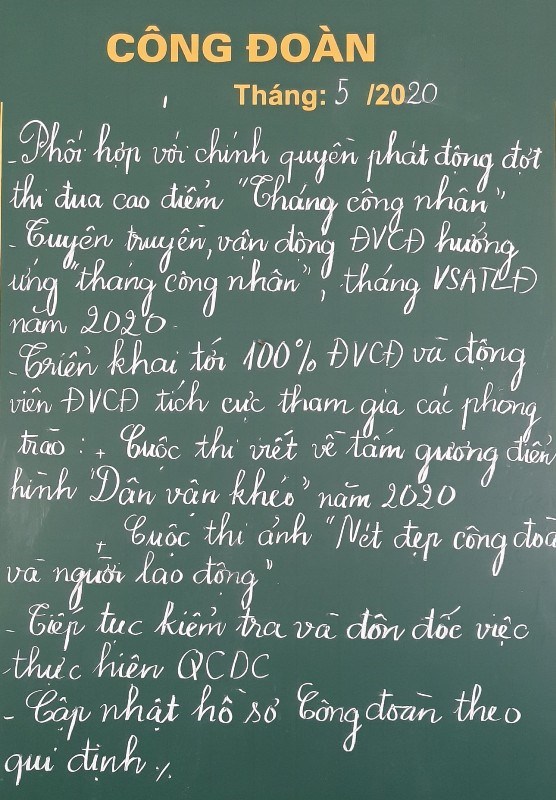 CÔNG ĐOÀN
Tháng: 5 /2020
- Phối hợp với chính quyền phát động đợt
thi đua cao điểm "Tháng công nhân"
- Tuyên truyền, vận động ĐVCĐ hưởng
ứng "tháng công nhân", tháng VSATLĐ
năm 2020.
- Triển khai tới 100% ĐVCĐ và động
viên ĐVCĐ tích cực tham gia các phong
trào: + Cuộc thi viết về tấm gương điển
hình "Dân vận khéo" năm 2020
+ Cuộc thi ảnh "Nét đẹp công đoà
và người lao động"
- Tiếp tục kiểm tra và đôn đốc việc
thực hiện QCDC
- Cập nhật hồ sơ Công đoàn theo
qui định ./.